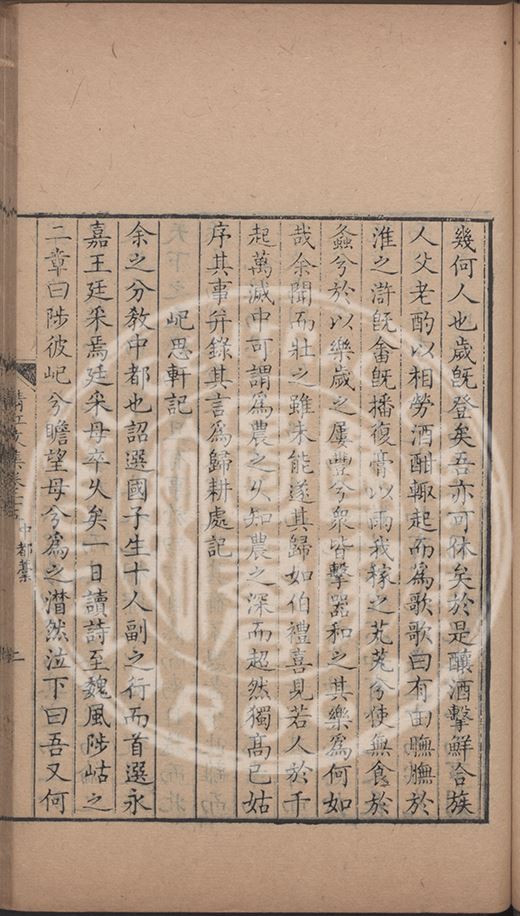 幾何人也歲既登矣吾亦可休矣於是釀酒擊鮮合族
人父老酌以相勞酒酣輒起而為歌歌曰有田膴膴於
淮之滸既畬既播復膏以雨我稼之芃芃兮使無食於
螽兮於以樂歲之屢豐兮衆皆擊器和之其樂為何如
哉余聞而壯之雖未能遂其歸如伯禮喜見若人於千
起萬滅中可謂為農之乆知農之深而超然獨髙已姑
序其事并錄其言為歸耕處記
屺思軒記
余之分教中都也詔選國子生十人副之行而首選永
嘉王廷采焉廷采母卒乆矣一日讀詩至魏風陟岵之
二章曰陟彼屺兮瞻望母兮為之潸然泣下曰吾又何
清江文集卷
中都藁